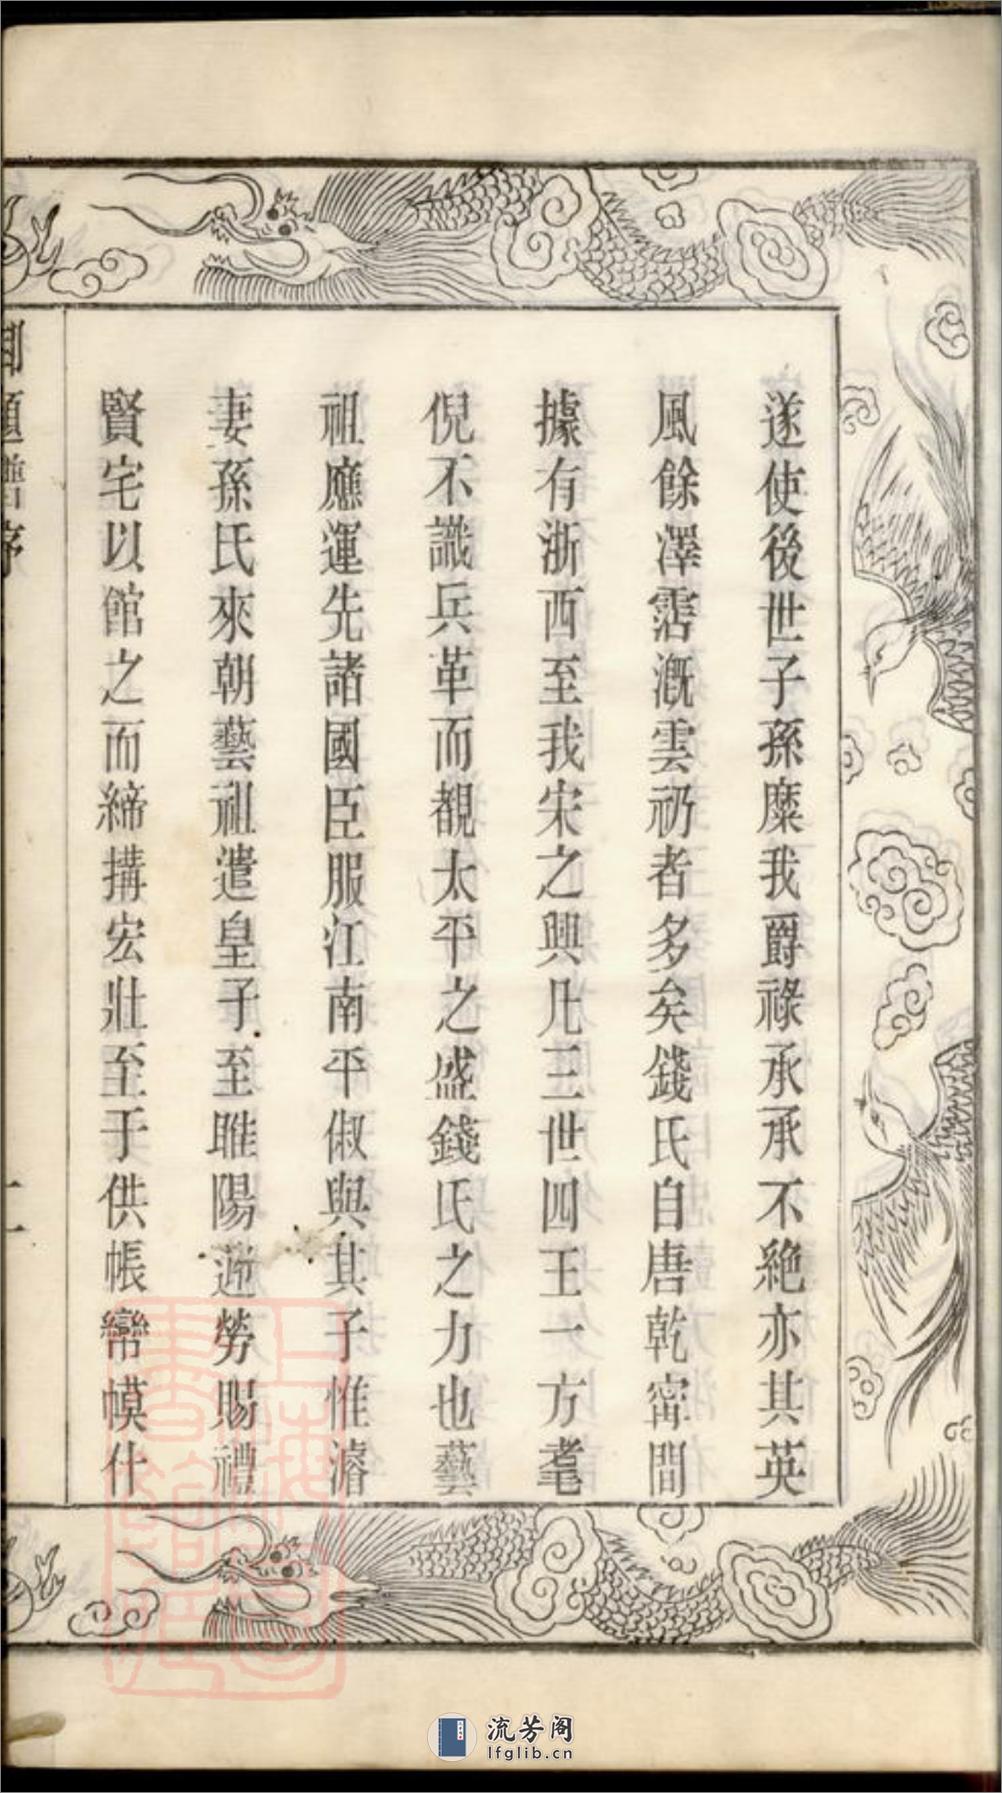 遂使後世子孫糜我爵祿承承不絶亦其英
風餘澤霑漑雲礽者多矣錢氏自唐乾甯間
據有浙西至我宋之興凡三世四王一方耄
倪不識兵革而覩太平之盛錢氏之力也藝
祖應運先諸國臣服江南平俶與其子惟濬
妻孫氏來朝藝祖遣皇子至睢陽迎勞賜禮
賢宅以館之而締搆宏壯至于供帳帟幙什
御題譜序
二
上海圖書館藏
流芳阁
lfglib.cn